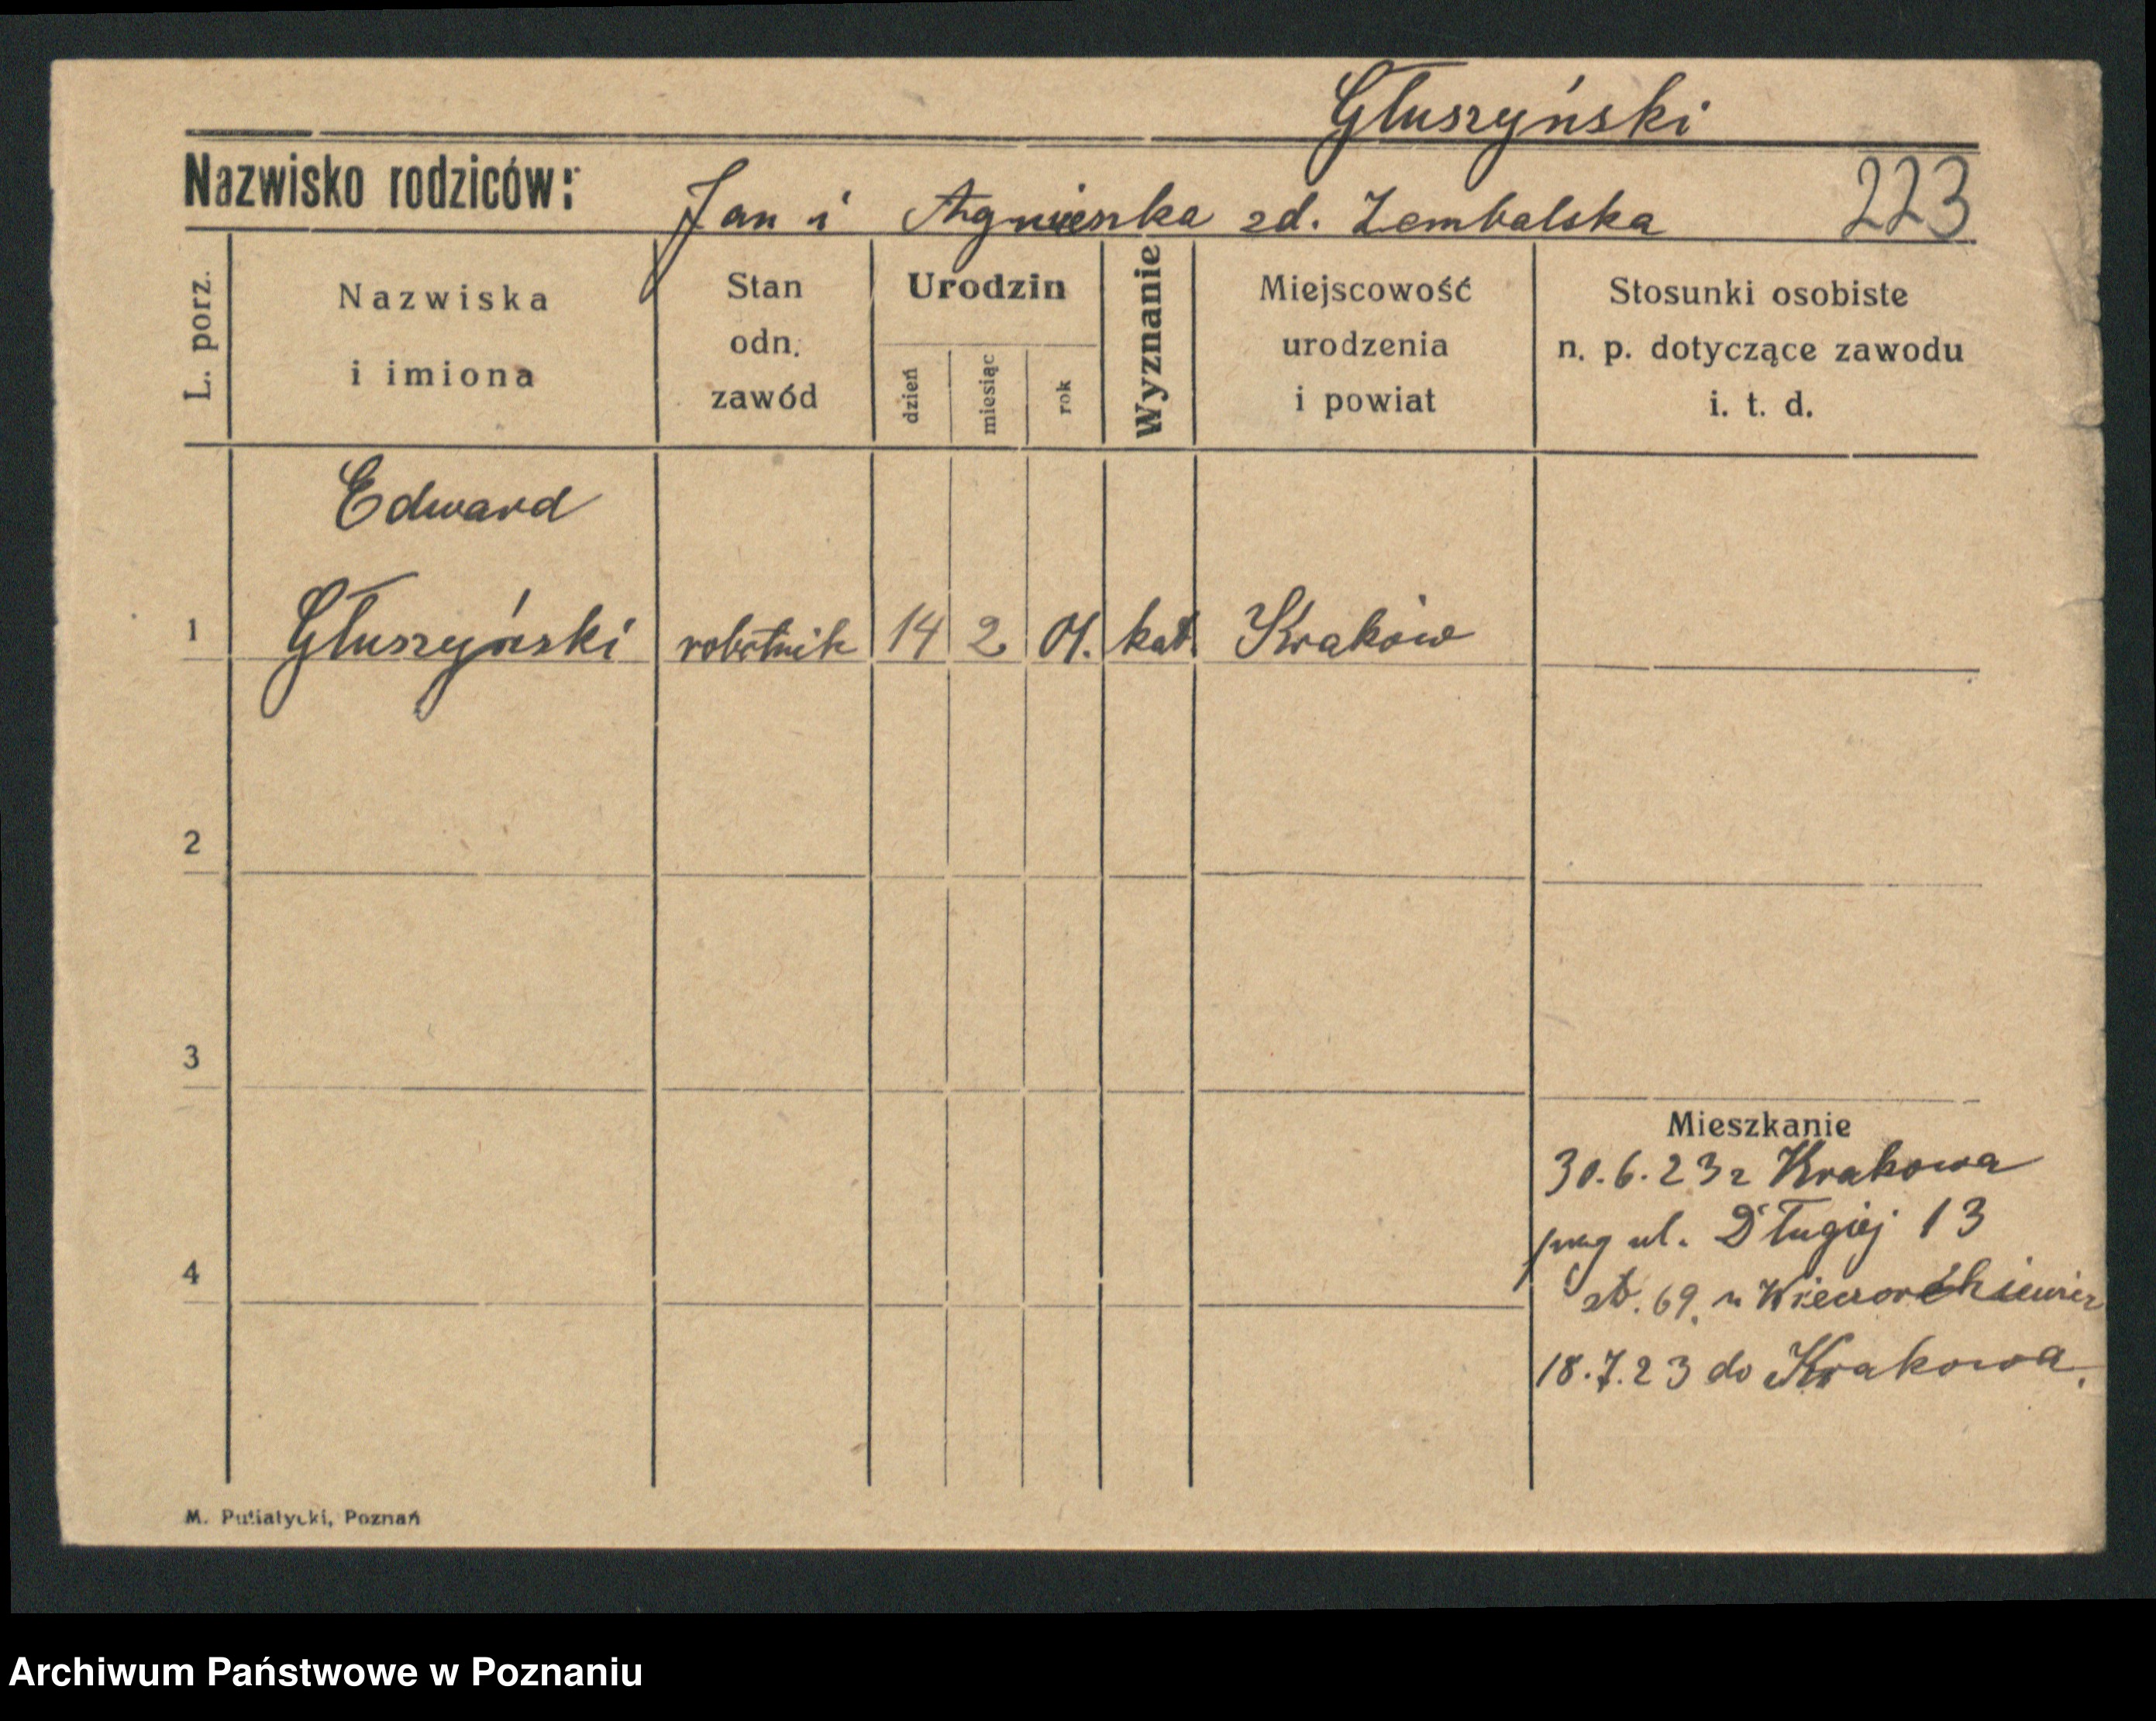 Głuszyński
Nazwisko rodziców: Jan i Agnieszka zd. Zembalska 223
L. porz.
Nazwiska
i imiona
Stan
odn.
zawód
Urodzin
dzień
miesiąc
rok
Wyznanie
Miejscowość
urodzenia
i powiat
Stosunki osobiste
n. p. dotyczące zawodu
i. t. d.
Edward
1 Głuszyński robotnik 14 2 01. kat. Kraków
2
3
Mieszkanie
30.6.23 z Krakowa
ul. Długiej 13
4
69. u
18.7.23 do Krakowa.
M. Putiatycki, Poznań
Archiwum Państwowe w Poznaniu